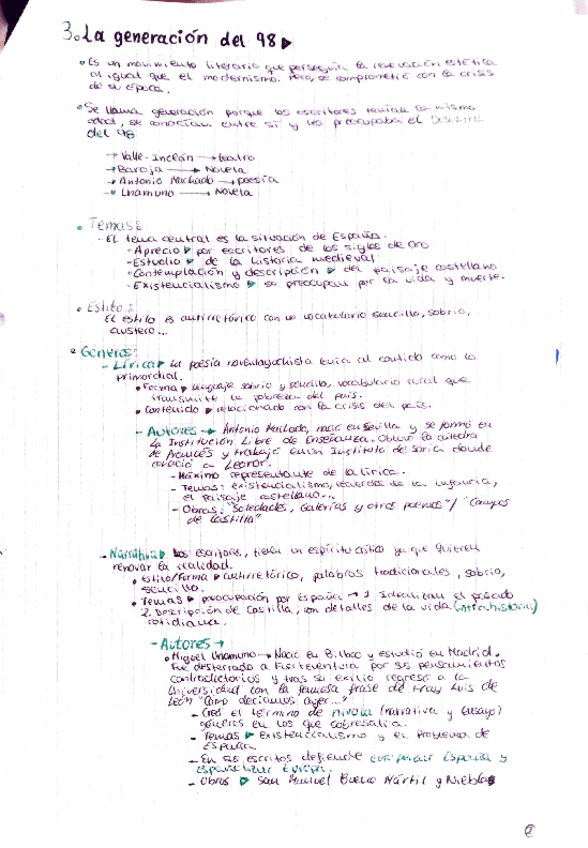 3. La generación del 98
• Es un movimiento literario que perseguía la renovación estética
al igual que el modernismo. Pero, se comprometió con la crisis
de su época.
• Se llama generación porque los escritores tenían la misma
edad, se conocían entre sí y les preocupaba el Desastre
del 98
→ Valle-Inclán → teatro
→ Baroja → Novela
→ Antonio Machado → poesía
→ Unamuno → Novela
• Temas:
- El tema central es la situación de España.
- Aprecio por escritores de los siglos de oro
- Estudio de la historia medieval
- Contemplación y descripción del paisaje castellano
- Existencialismo se preocupan por la vida y muerte.
• Estilo:
El estilo es antirretórico con un vocabulario sencillo, sobrio,
austero...
• Géneros:
- Lírica La poesía noventayochista tenía al contido como lo
primordial.
• Forma lenguaje sobrio y sencillo, vocabulario rural que
transmite la pobreza del país.
• Contenido relacionado con la crisis del país.
- Autores → Antonio Machado, nació en Sevilla y se formó en
la Institución Libre de Enseñanza. Obtuvo la cátedra
de francés y trabajó en un Instituto de Soria donde
conoció a Leonor.
- Máximo representante de la lírica.
- Temas: existencialismo, recuerdos de la infancia,
el paisaje castellano...
- Obras: "Soledades, Galerías y otros poemas" / "Campos
de Castilla"
- Narrativa Los escritores, tienen un espíritu crítico ya que quieren
renovar la realidad.
• Estilo/forma antirretórico, palabras tradicionales, sobrio,
sencillo.
• Temas preocupación por España → 1 Idealizan el pasado
2. Descripción de Castilla, con detalles de la vida (intrahistoria)
cotidiana.
- Autores →
• Miguel Unamuno → Nació en Bilbao y estudió en Madrid.
Fue desterrado a Fuerteventura por sus pensamientos
contradictorios y tras su exilio regresó a la
Universidad con la famosa frase de Fray Luis de
León "Como decíamos ayer..."
- Creó el término de nivola (narrativa y ensayo)
géneros en los que sobresalía.
- Temas Existencialismo y el Problema de
España
- En sus escritos defiende europeizar España y
españolizar Europa.
- Obras San Manuel Bueno Mártir y Niebla
2